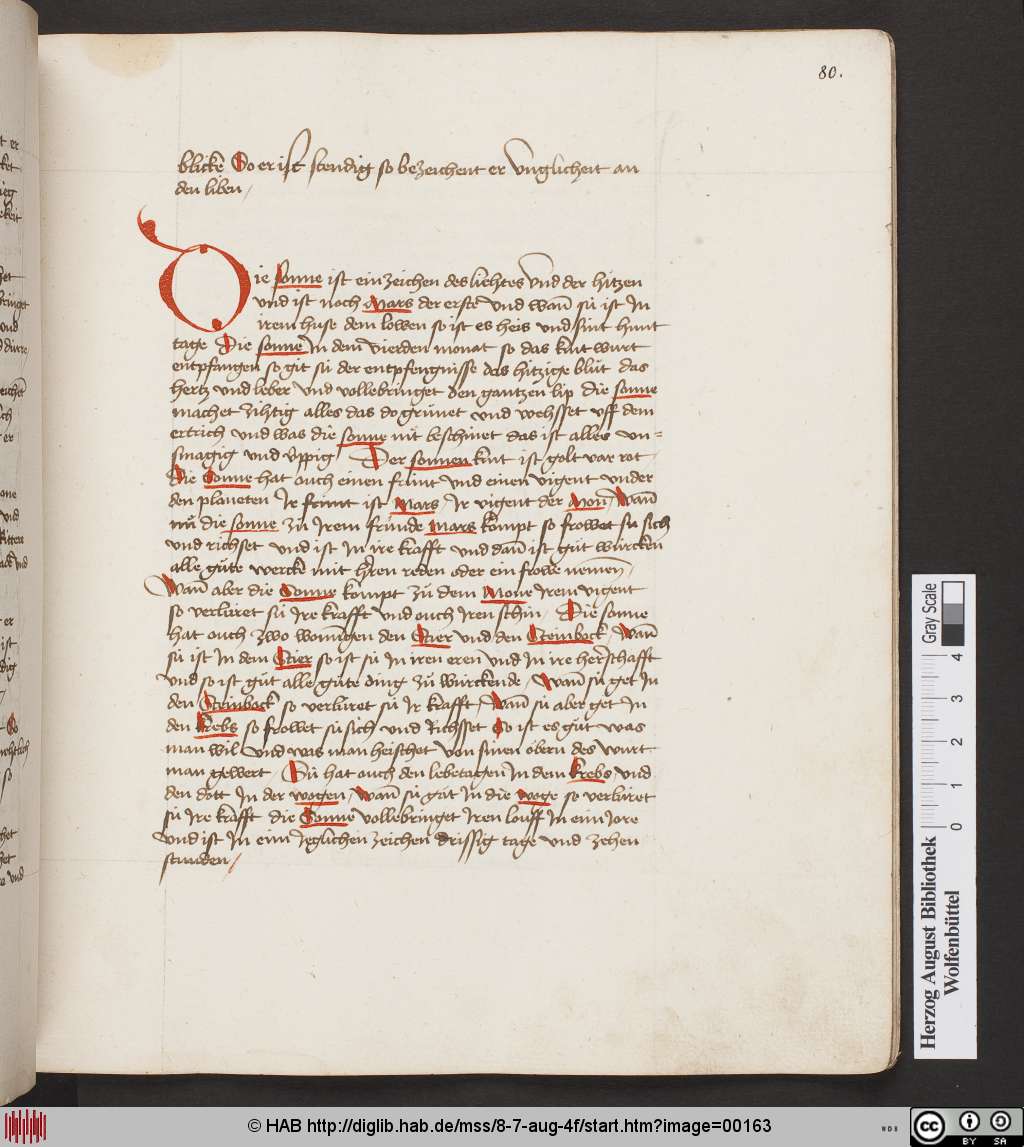 80.
blicke So er ist stendig so bezeichent er vnglicheit an
den liben /
Die sonne ist ein zeichen des liehtes vnd der hitzen
vnd ist noch Mars der erste vnd wan̄ sü ist In
irem huse dem lowen so ist es heis vnd sint hunt
tage Die sonne In dem vierden monat so das kint wurt
entpfangen so git sü der entpfengnisse das hitzige blüt das
hertz vnd leber vnd vollebringet den gantzen lip die sonne
machet zihtig alles das do grünet vnd wehsset vff dem
ertrich vnd was die sonne nit beschinet das ist alles vn=
smagig vnd vppig Der sonnen kint ist golt var rot
die Sonne hat ouch einen frünt vnd einen vigent vnder
den planeten Ir frünt ist Mars / Ir vigent der Mon / Wan̄
nů die sonne zü Irem fründe Mars kompt so frowet sü sich
vnd richset vnd ist In ire krafft vnd dan̄ ist güt würcken
alle güte wercke mit herren reden oder ein frowe nemen /
Wan̄ aber die Sonne kompt zü dem Mone Irem vigent
so verlüret sü Ire krafft vnd ouch Iren schin / Die sonne
hat ouch zwo wonūgen den Stier vnd den Steinbock / Wan̄
sü ist In dem Stier so ist sü In iren eren vnd In ire herschafft
vnd so ist güt alle güte ding zü würckende / Wan̄ sü get In
den Steinbock so verlüret sü Ir krafft / Wan̄ sü aber get In
den krebs so frowet sü sich vnd Richsset So ist es güt was
man wil vnd was man heischet von sinen obern des wurt
man gewert / Sü hat ouch den lebetagen In dem krebs vnd
den dott In der wogen / Wan̄ sü gät In die woge so verlüret
sü Ire krafft die Sonne vollebringet Iren louff In eim Jore
vnd ist In eim Jeglichen zeichen drissig tage vnd zehen
stunden /
Gray Scale
0 1 2 3 4
Herzog August Bibliothek
Wolfenbüttel
© HAB http://diglib.hab.de/mss/8-7-aug-4f/start.htm?image=00163
WDB
cc BY SA